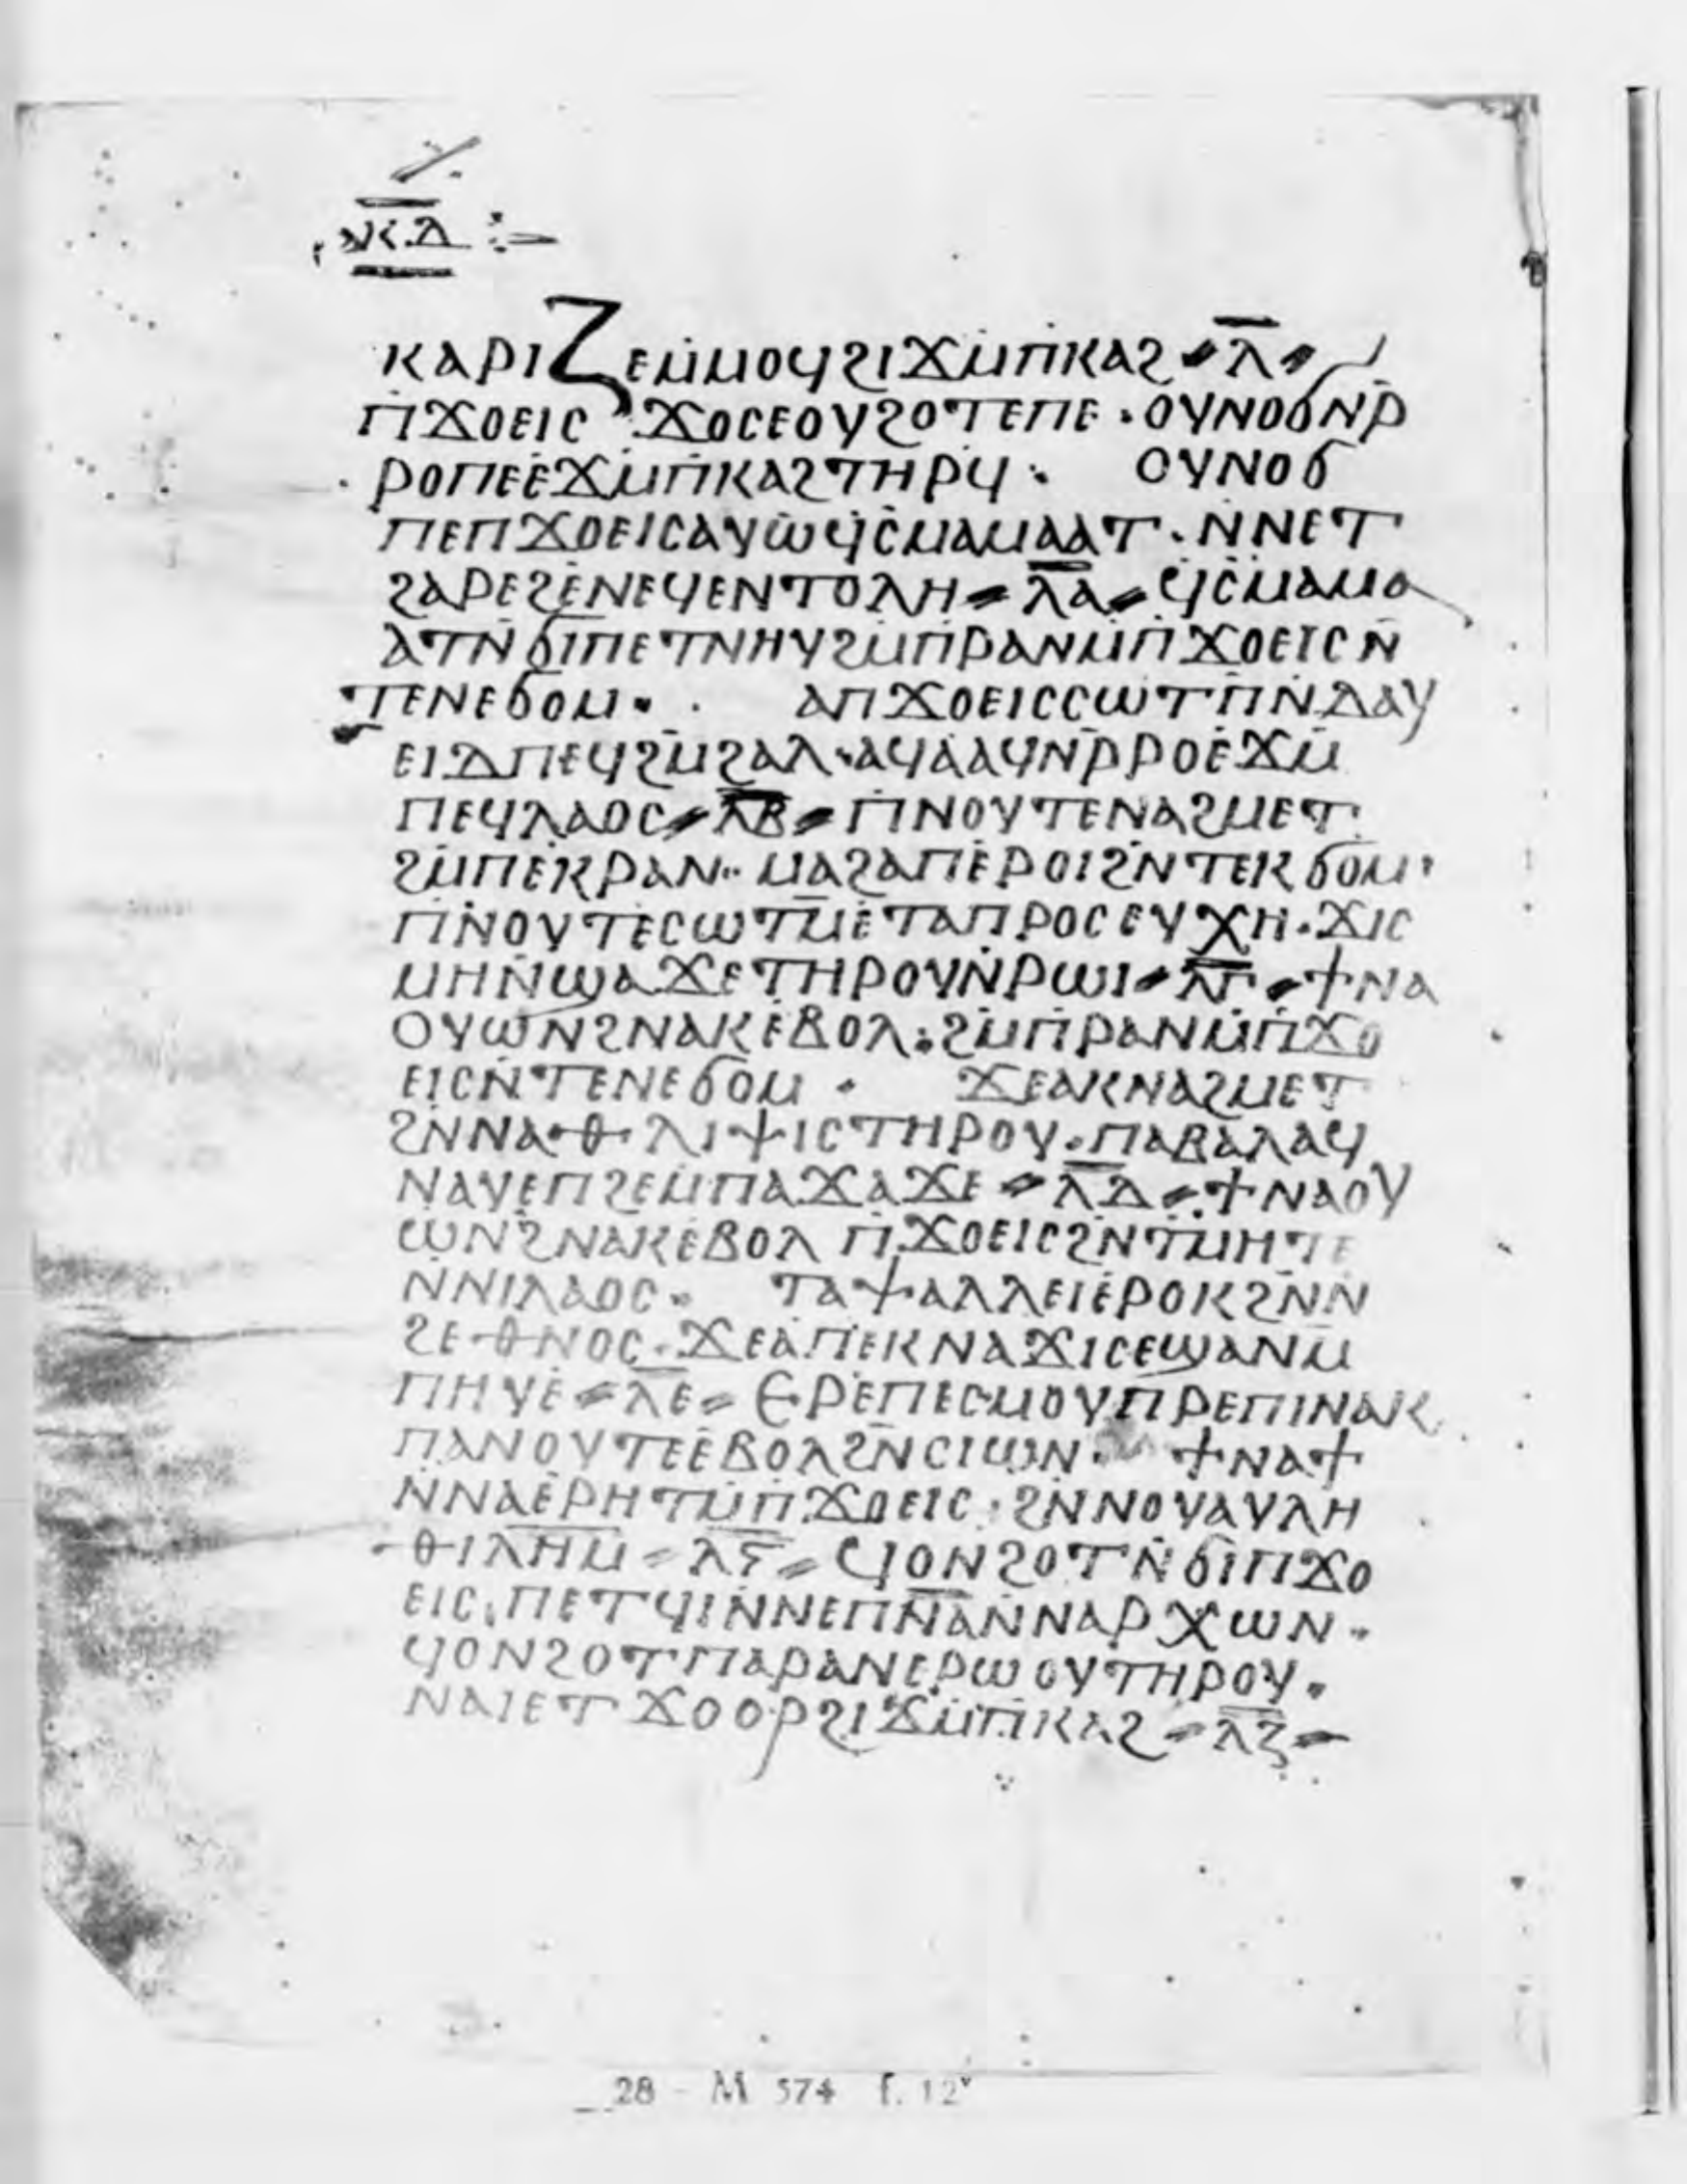 ⲕ̅ⲇ̅ :–
ⲕⲁⲣⲓⲍⲉⲙ̇ⲙⲟϥϩⲓϫⲙ̇ⲡ̇ⲕⲁϩ ⸗ ⲗ̅ ⸗
ⲡ̇ϫⲟⲉⲓⲥ ϫⲟⲥⲉⲟⲩϩⲟⲧⲉⲡⲉ · ⲟⲩⲛⲟϭⲛ̇ⲣ̇
ⲣⲟⲡⲉⲉ̇ϫⲙ̇ⲡ̇ⲕⲁϩⲧⲏⲣϥ̇ : ⲟⲩⲛⲟϭ
ⲡⲉⲡϫⲟⲉⲓⲥⲁⲩⲱϥ̇ⲥ̇ⲙⲁⲙⲁⲁⲧ · ⲛ̇ⲛⲉⲧ
ϩⲁⲣⲉϩⲉ̇ⲛⲉϥⲉⲛⲧⲟⲗⲏ ⸗ ⲗ̅ⲁ̅ ⸗ ϥ̇ⲥ̇ⲙⲁⲙⲁ
ⲁⲧⲛ̇ϭⲓⲡⲉⲧⲛⲏⲩϩⲙ̇ⲡ̇ⲣⲁⲛⲙ̇ⲡ̇ϫⲟⲉⲓⲥⲛ̇
ⲧⲉⲛⲉϭⲟⲙ · ⲁⲡϫⲟⲉⲓⲥⲥⲱⲧⲡ̇ⲛ̇ⲇⲁⲩ
ⲉⲓⲇⲡⲉϥϩⲙ̇ϩⲁⲗ · ⲁϥⲁⲁϥⲛ̇ⲣ̇ⲣⲟⲉ̇ϫⲙ̇
ⲡⲉϥⲗⲁⲟⲥ ⸗ ⲗ̅ⲃ̅ ⸗ ⲡ̇ⲛⲟⲩⲧⲉⲛⲁϩⲙⲉⲧ
ϩⲙ̇ⲡⲉⲕⲣⲁⲛ ·· ⲙⲁϩⲁⲡⲉ̇ⲣⲟⲓϩⲛ̇ⲧⲉⲕϭⲟⲙ ·
ⲡ̇ⲛⲟⲩⲧⲉⲥⲱⲧⲙ̇ⲉ̇ⲧⲁⲡⲣⲟⲥⲉⲩⲭⲏ · ϫⲓⲥ
ⲙⲏⲛ̇ϣⲁϫⲉⲧⲏⲣⲟⲩⲛ̇ⲣⲱⲓ ⸗ ⲗ̅ⲅ̅ ⸗ ϯⲛⲁ
ⲟⲩⲱⲛϩⲛⲁⲕⲉ̇ⲃⲟⲗ : ϩⲙ̇ⲡ̇ⲣⲁⲛⲙ̇ⲡ̇ϫⲟ
ⲉⲓⲥⲛ̇ⲧⲉⲛⲉϭⲟⲙ · ϫⲉⲁⲕⲛⲁϩⲙⲉⲧ
ϩⲛ̇ⲛⲁⲑⲗⲓⲯⲓⲥⲧⲏⲣⲟⲩ · ⲡⲁⲃⲁⲗⲁϥ
ⲛⲁⲩⲉⲡϩⲉⲙⲡⲁϫⲁϫⲉ ⸗ ⲗ̅ⲇ̅ ⸗ ϯⲛⲁⲟⲩ
ⲱⲛϩⲛⲁⲕⲉ̇ⲃⲟⲗ ⲡ̇ϫⲟⲉⲓⲥϩⲛ̇ⲧⲙ̇ⲏⲧⲉ
ⲛ̇ⲛⲓⲗⲁⲟⲥ · ⲧⲁⲯⲁⲗⲗⲉⲓⲉ̇ⲣⲟⲕϩⲛ̇ⲛ
ϩⲉⲑⲛⲟⲥ · ϫⲉⲁ̇ⲡⲉⲕⲛⲁϫⲓⲥⲉϣⲁⲛⲙ̇
ⲡⲏⲩⲉ̇ ⸗ ⲗ̅ⲉ̅ ⸗ ⲉⲣⲉⲡⲉⲥⲙⲟⲩⲡ̇ⲣⲉⲡⲓⲛⲁⲕ
ⲡⲁⲛⲟⲩⲧⲉⲉ̇ⲃⲟⲗϩⲛ̇ⲥⲓⲱⲛ · ϯⲛⲁϯ
ⲛ̇ⲛⲁⲉ̇ⲣⲏⲧⲙ̇ⲡ̇ϫⲟⲉⲓⲥ : ϩⲛ̇ⲛⲟⲩⲁⲩⲗⲏ
ⲑⲓⲗ̅ⲏ̅ⲙ̅ ⸗ ⲗ̅ⲋ̅ ⸗ ϥⲟⲛϩⲟⲧⲛ̇ϭⲓⲡϫⲟ
ⲉⲓⲥ · ⲡⲉⲧϥⲓⲛ̇ⲛⲉⲡ̅ⲛ̅ⲁ̅ⲛ̇ⲛⲁⲣⲭⲱⲛ ·
ϥⲟⲛϩⲟⲧⲡⲁⲣⲁⲛⲉⲣⲱⲟⲩⲧⲏⲣⲟⲩ ·
ⲛⲁⲓⲉⲧϫⲟⲟⲣϩⲓϫⲙ̇ⲡ̇ⲕⲁϩ ⸗ ⲗ̅ⲍ̅ ⸗
28 - M 574 f. 12ᵛ